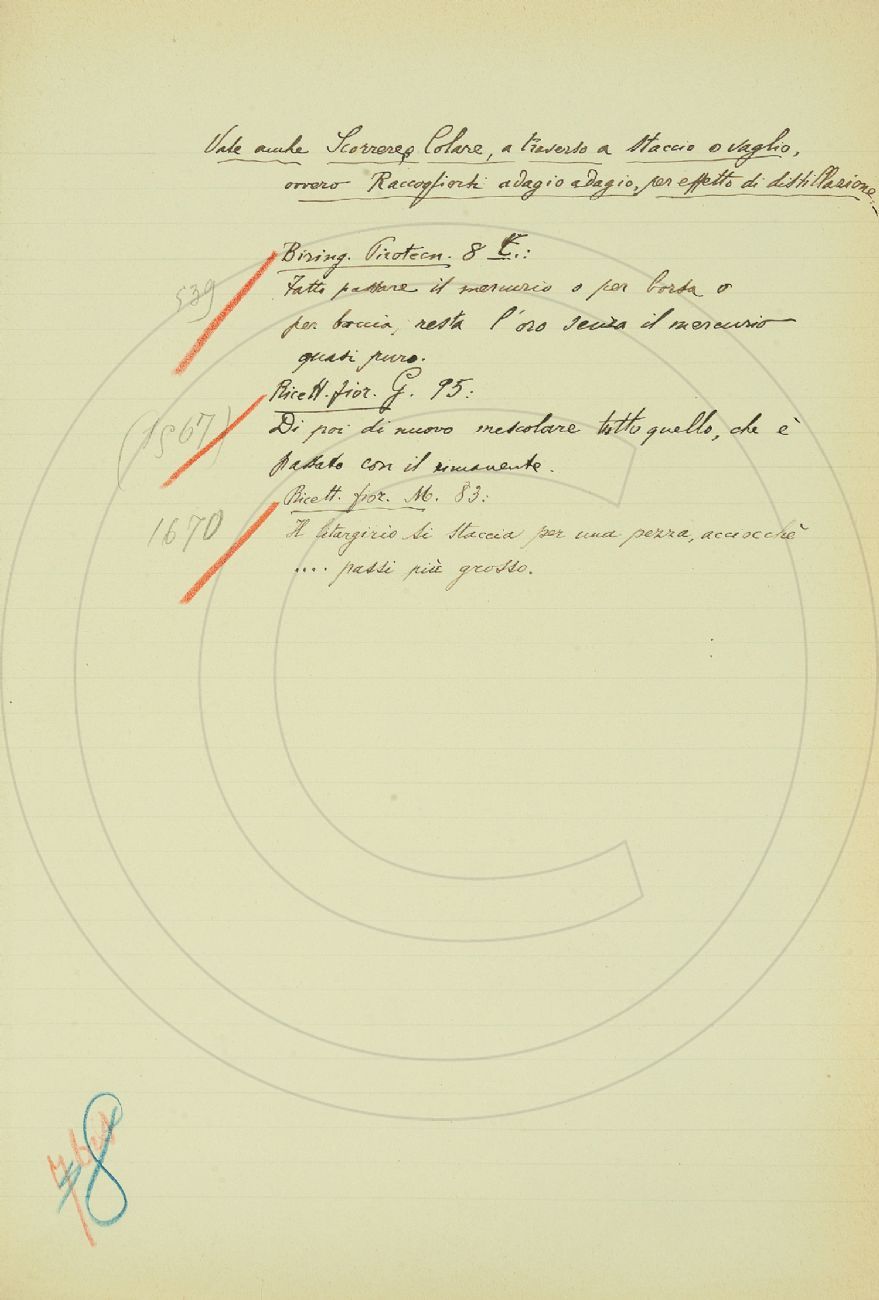 Vale anche Scorrere, Colare, a traverso a staccio o vaglio,
ovvero Raccogliersi adagio adagio, per effetto di distillazione.
Biring. Pirotecn. 8
539
Fatto passare il mercurio o per borsa o
per boccia, resta l'oro senza il mercurio
quasi puro.
Ricett. fior. G. 95:
(1567)
Di poi di nuovo mescolare tutto quello, che è
passato con il rimanente.
Ricett. fior. M. 83:
1670
Il litargirio si staccia per una pezza, acciocchè
.... passi più grosso.
8